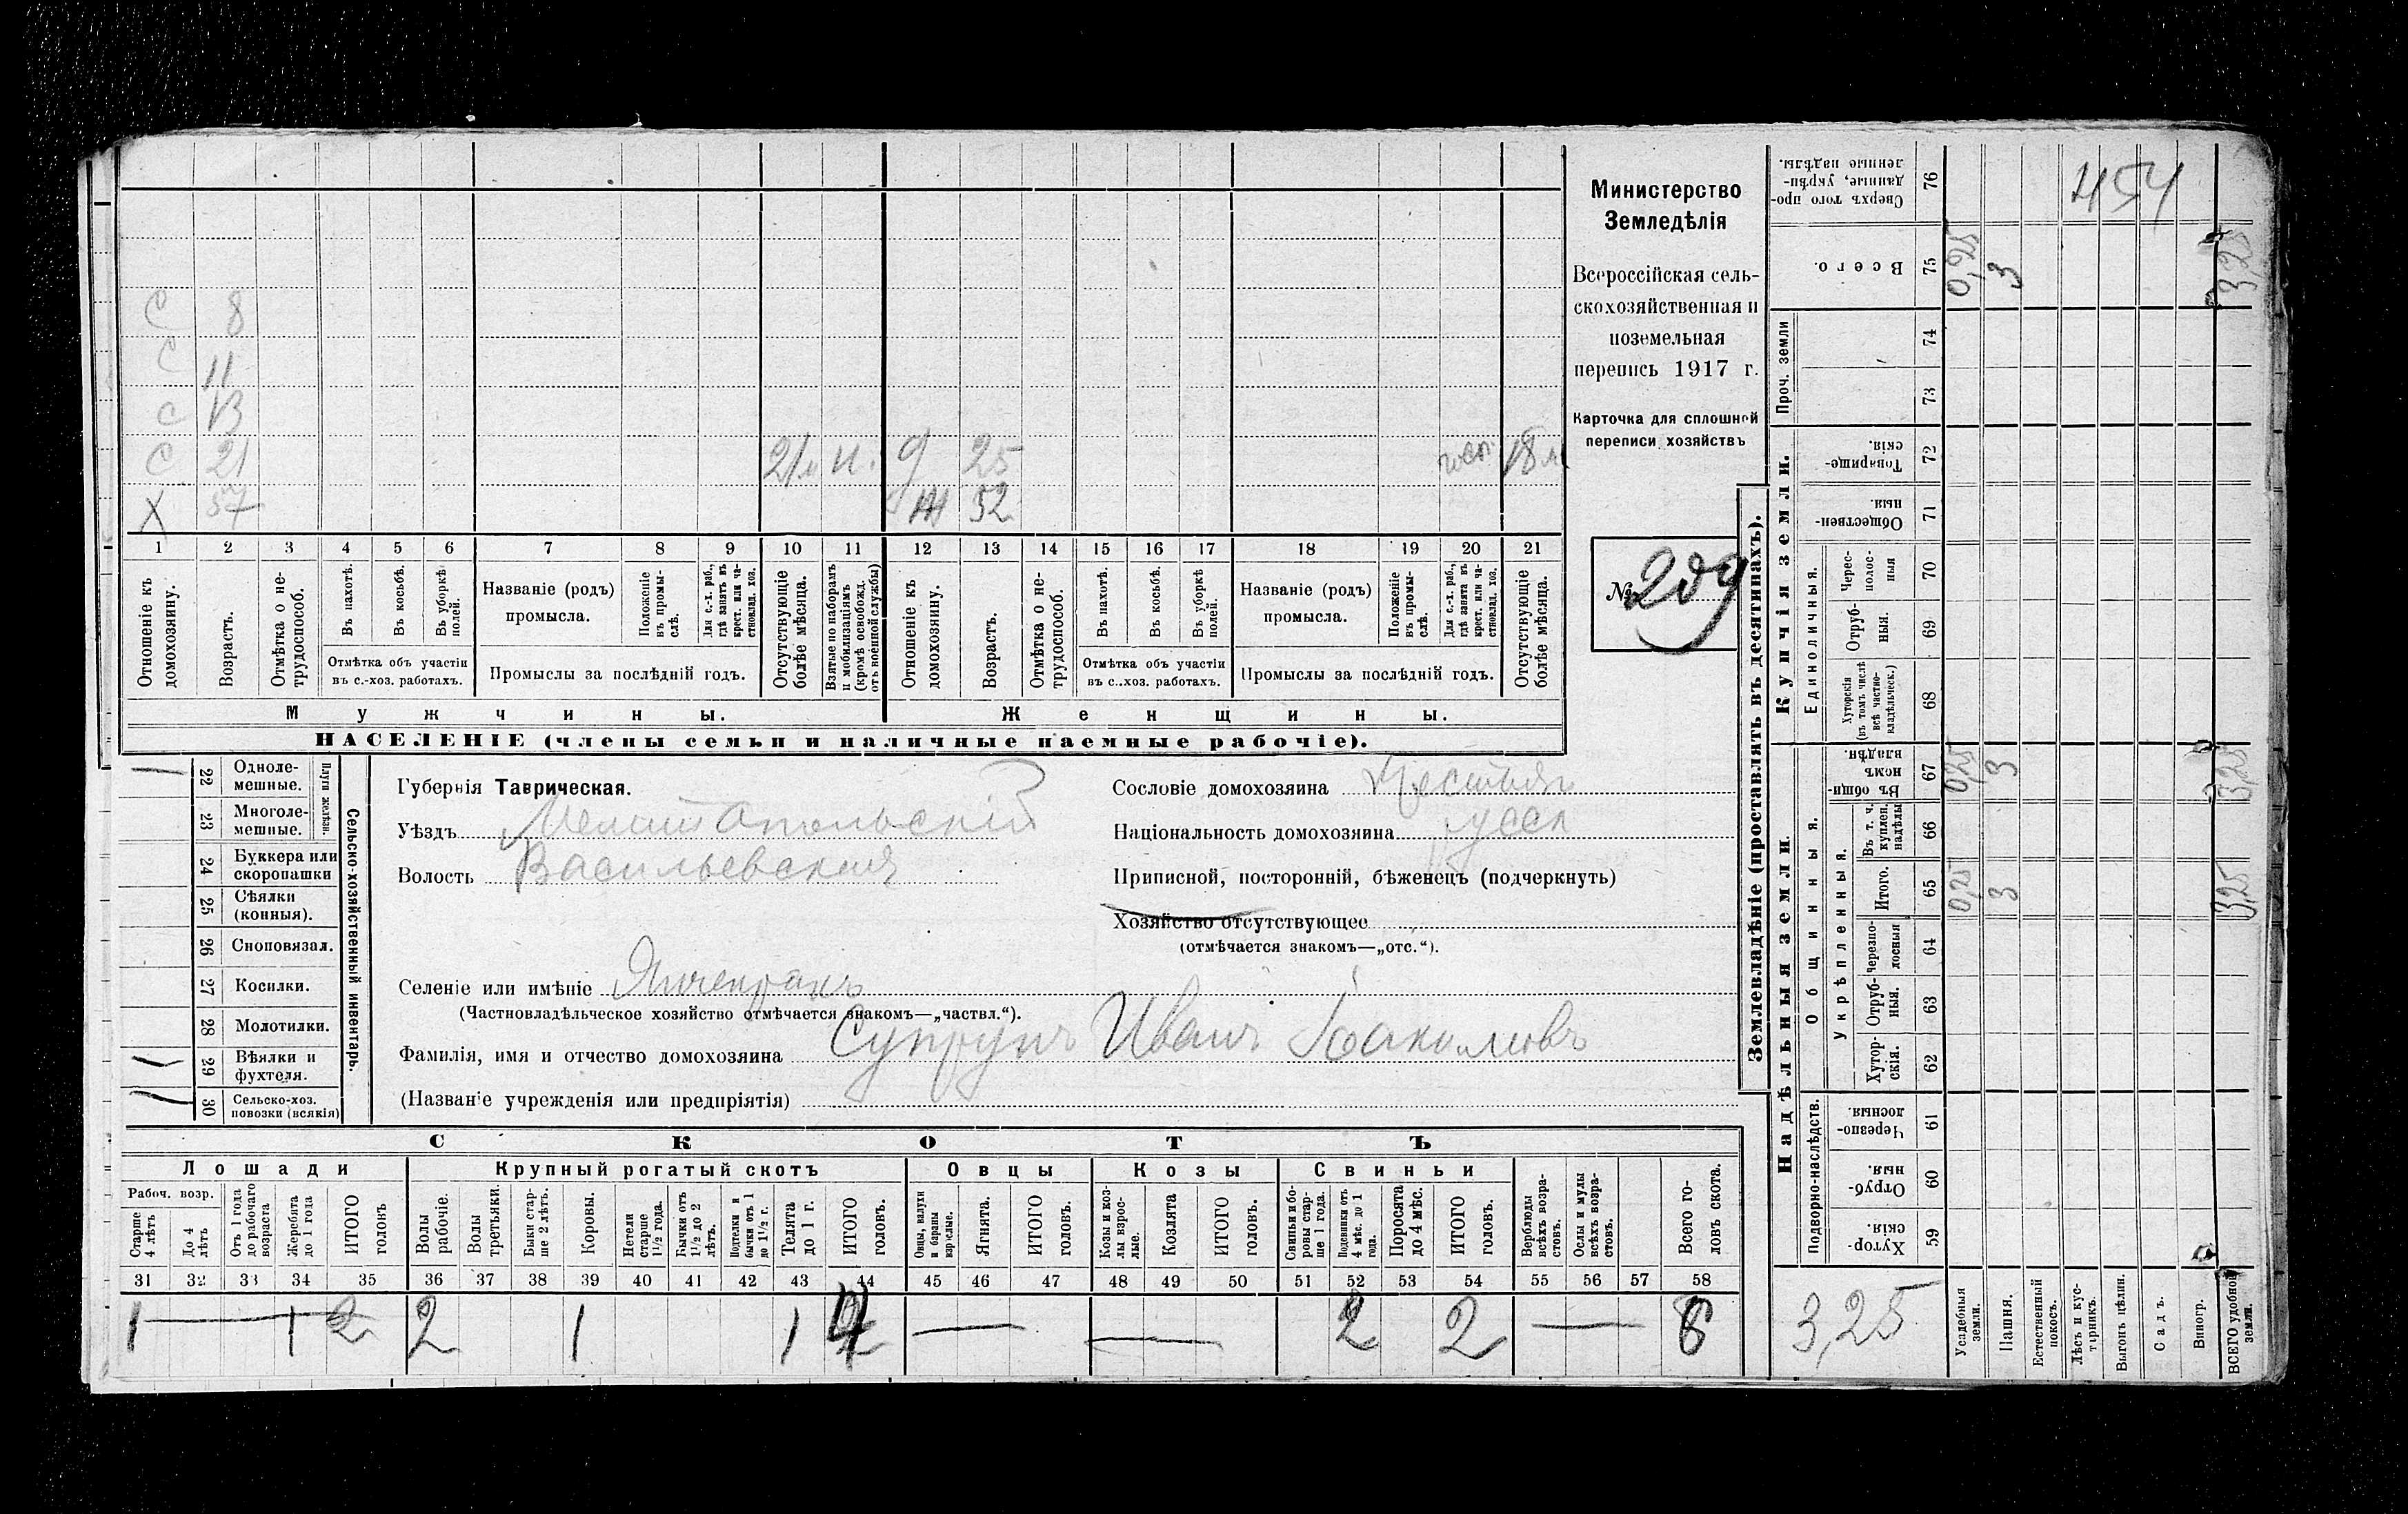 Министерство
Земледѣлія
Всероссійская сель-
скохозяйственная и
поземельная
перепись 1917 г.
Карточка для сплошной
переписи хозяйствъ
№ 209
454
С 8
С 11
С 13
С 21 21 м н. 9 25 18 м
Х 57 Ж 52
1 2 3 4 5 6 7 8 9 10 11 12 13 14 15 16 17 18 19 20 21
Отношеніе къ домохозяину.
Возрастъ.
Отмѣтка о не-трудоспособ.
Въ пахотѣ.
Въ косьбѣ.
Въ уборкѣ полей.
Отмѣтка объ участіи въ с.-хоз. работахъ.
Названіе (родъ) промысла.
Положеніе въ промы-слѣ.
Для с.-х. раб., гдѣ занятъ въ крест. или ча-стновлад. хоз.
Промыслы за послѣдній годъ.
Отсутствующіе болѣе мѣсяца.
Взятые по наборамъ и мобилизаціямъ (кромѣ освобожд. отъ военной службы)
Отношеніе къ домохозяину.
Возрастъ.
Отмѣтка о не-трудоспособ.
Въ пахотѣ.
Въ косьбѣ.
Въ уборкѣ полей.
Отмѣтка объ участіи въ с.-хоз. работахъ.
Названіе (родъ) промысла.
Положеніе въ промы-слѣ.
Для с.-х. раб., гдѣ занята въ крест. или ча-стновлад. хоз.
Промыслы за послѣдній годъ.
Отсутствующіе болѣе мѣсяца.
Мужчины.
Женщины.
НАСЕЛЕНІЕ (члены семьи и наличные наемные рабочіе).
Сельско-хозяйственный инвентарь.
Плуги желѣзн.
22 Одноле-мешные.
23 Многоле-мешные.
24 Буккера или скоропашки
25 Сѣялки (конныя).
26 Сноповязал.
27 Косилки.
28 Молотилки.
29 Вѣялки и фухтеля.
30 Сельско-хоз. повозки (всякія)
Губернія Таврическая.
Уѣздъ Мелитопольскій
Волость Васильевская
Сословіе домохозяина
Національность домохозяина русск
Приписной, посторонній, бѣженецъ (подчеркнуть)
Хозяйство отсутствующее
(отмѣчается знакомъ—„отс.“).
Селеніе или имѣніе Янчекракъ
(Частновладѣльческое хозяйство отмѣчается знакомъ—„частвл.“).
Фамилія, имя и отчество домохозяина Супрунъ Иванъ
(Названіе учрежденія или предпріятія)
СКОТЪ
Лошади Крупный рогатый скотъ Овцы Козы Свиньи
Рабоч. возр.
Старше 4 лѣтъ
До 4 лѣтъ
Отъ 1 года до рабочаго возраста
Жеребята до 1 года
ИТОГО головъ
Волы рабочіе.
Волы третьяки.
Быки стар-ше 2 лѣтъ.
Коровы.
Нетели старше 1½ года.
Бычки отъ 1½ до 2 лѣтъ.
Подтелки и бычки отъ 1 до 1½ г.
Телята до 1 г.
ИТОГО головъ.
Овцы, валухи и бараны взрослые.
Ягнята.
ИТОГО головъ.
Козы и коз-лы взрос-лые.
Козлята
ИТОГО головъ.
Свиньи и бо-ровы стар-ше 1 года.
Подсвинки отъ 4 мѣс. до 1 года.
Поросята до 4 мѣс.
ИТОГО головъ.
Верблюды всѣхъ возра-стовъ.
Ослы и мулы всѣхъ возра-стовъ.
Всего го-ловъ скота.
31 32 33 34 35 36 37 38 39 40 41 42 43 44 45 46 47 48 49 50 51 52 53 54 55 56 57 58
1 — 1 2 2 1 1 4 — — 2 2 — 8
Землевладѣніе (проставлять въ десятинахъ).
Надѣльныя земли.
Купчія земли.
Проч. земли
Подворно-наслѣдств.
Общинныя.
Укрѣпленныя.
Единоличныя.
Сверхъ того про-данные, укрѣп-ленные надѣлы. 76
Всего. 75 0,25 3 3,25
74
73
Товарище-скія. 72
Обществен-ныя 71
Черес-полос-ныя 70
Отруб-ныя. 69
Хуторскія (въ томъ числѣ всѣ частно-владѣльческ.) 68
Въ общи-номъ владѣн. 67 0,25 3 3,25
Въ т. ч. куплен. надѣлы 66
Итого. 65 0,25 3 3,25
Черезпо-лосныя 64
Отруб-ныя. 63
Хутор-скія. 62
Черезпо-лосныя. 61
Отруб-ныя. 60
Хутор-скія. 59
3,25
Усадебныя земли.
Пашня.
Естественный покосъ.
Лѣсъ и кус-тарникъ.
Выгонъ цѣлин.
Садъ.
Виногр.
ВСЕГО удобной земли.